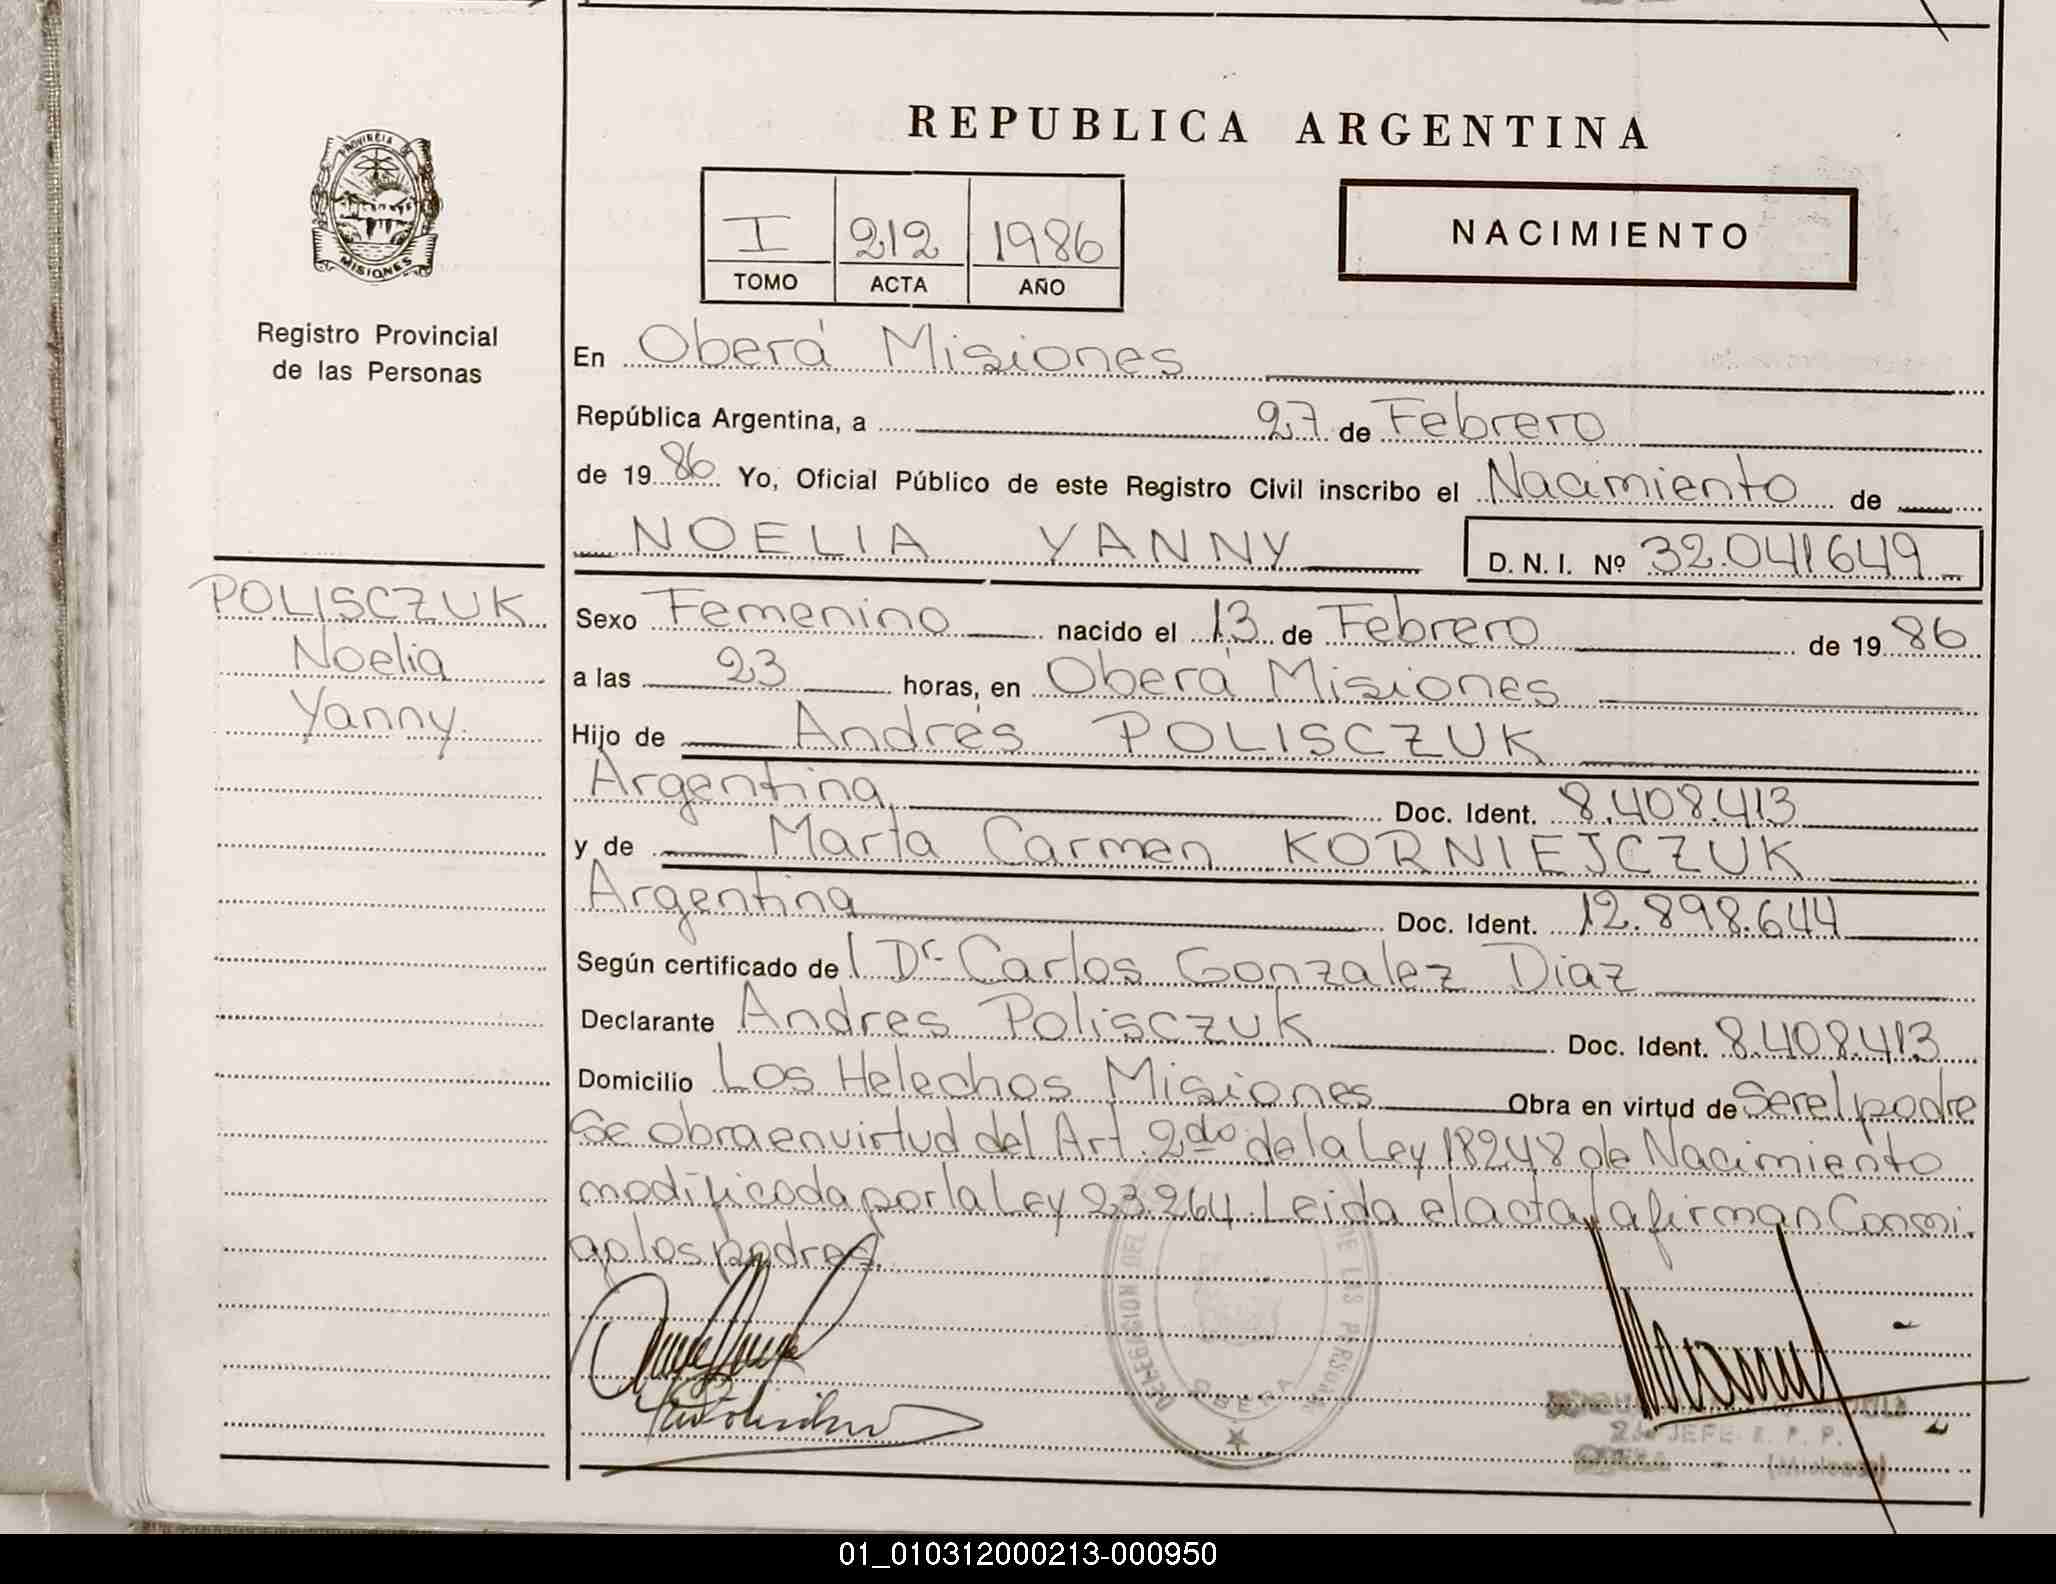 REPUBLICA ARGENTINA
PROVINCIA DE
MISIONES
Registro Provincial
de las Personas
I 212 1986
TOMO ACTA AÑO
NACIMIENTO
En Oberá Misiones
República Argentina, a 27 de Febrero
de 19 86 Yo, Oficial Público de este Registro Civil inscribo el Nacimiento de
NOELIA YANNY D. N. I. Nº 32.041649
POLISCZUK
Noelia
Yanny.
Sexo Femenino nacido el 13 de Febrero de 19 86
a las 23 horas, en Oberá Misiones
Hijo de Andrés POLISCZUK
Argentina Doc. Ident. 8.408.413
y de Marta Carmen KORNIEJCZUK
Argentina Doc. Ident. 12.898.644
Según certificado del Dr. Carlos Gonzalez Diaz
Declarante Andres Polisczuk Doc. Ident. 8.408.413
Domicilio Los Helechos Misiones Obra en virtud de Ser el padre
Se obra en virtud del Art. 2do de la Ley 18248 de Nacimiento
modificada por la Ley 23.264. Leida el acta, la firman Conmi.
go los padres.
DELEGACION DEL DE LAS PERSONAS
OBERA
JEFE R. P. P.
(Misiones)
01_010312000213-000950